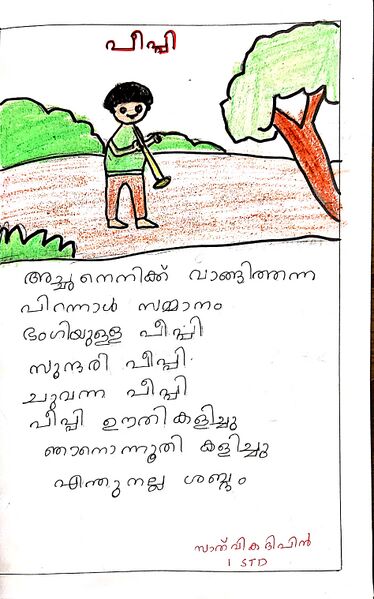 പീപ്പി
അച്ഛനെനിക്ക് വാങ്ങിത്തന്ന
പിറന്നാൾ സമ്മാനം
ഭംഗിയുള്ള പീപ്പി
സുന്ദരി പീപ്പി
ചുവന്ന പീപ്പി
പീപ്പി ഊതി കളിച്ചു
ഞാനൊന്നൂതി കളിച്ചു
എന്തു നല്ല ശബ്ദം
സാത്വിക ദിപിൻ
1 STD